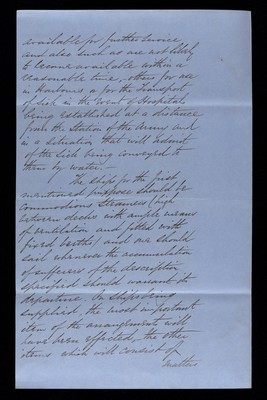 available for further Service
and also such as are not likely
to become available within a
reasonable time, others for use
in Harbours or for the transport
of sick in the event of Hospitals
being established at a distance
from the Station of the Army and
in a situation that will admit
of the Sick being conveyed to
them by water.
The ships for the first
mentioned purpose should be
commodious Steamers (high
between decks with ample means
of ventilation and fitted with
fixed berths) and one should
sail whenever the accumulation
of sufferers of the description
specified should warrant its
departure. In ships being
supplied, the most important
item of the arrangement will
have been effected, the other
items which will consist of
matters